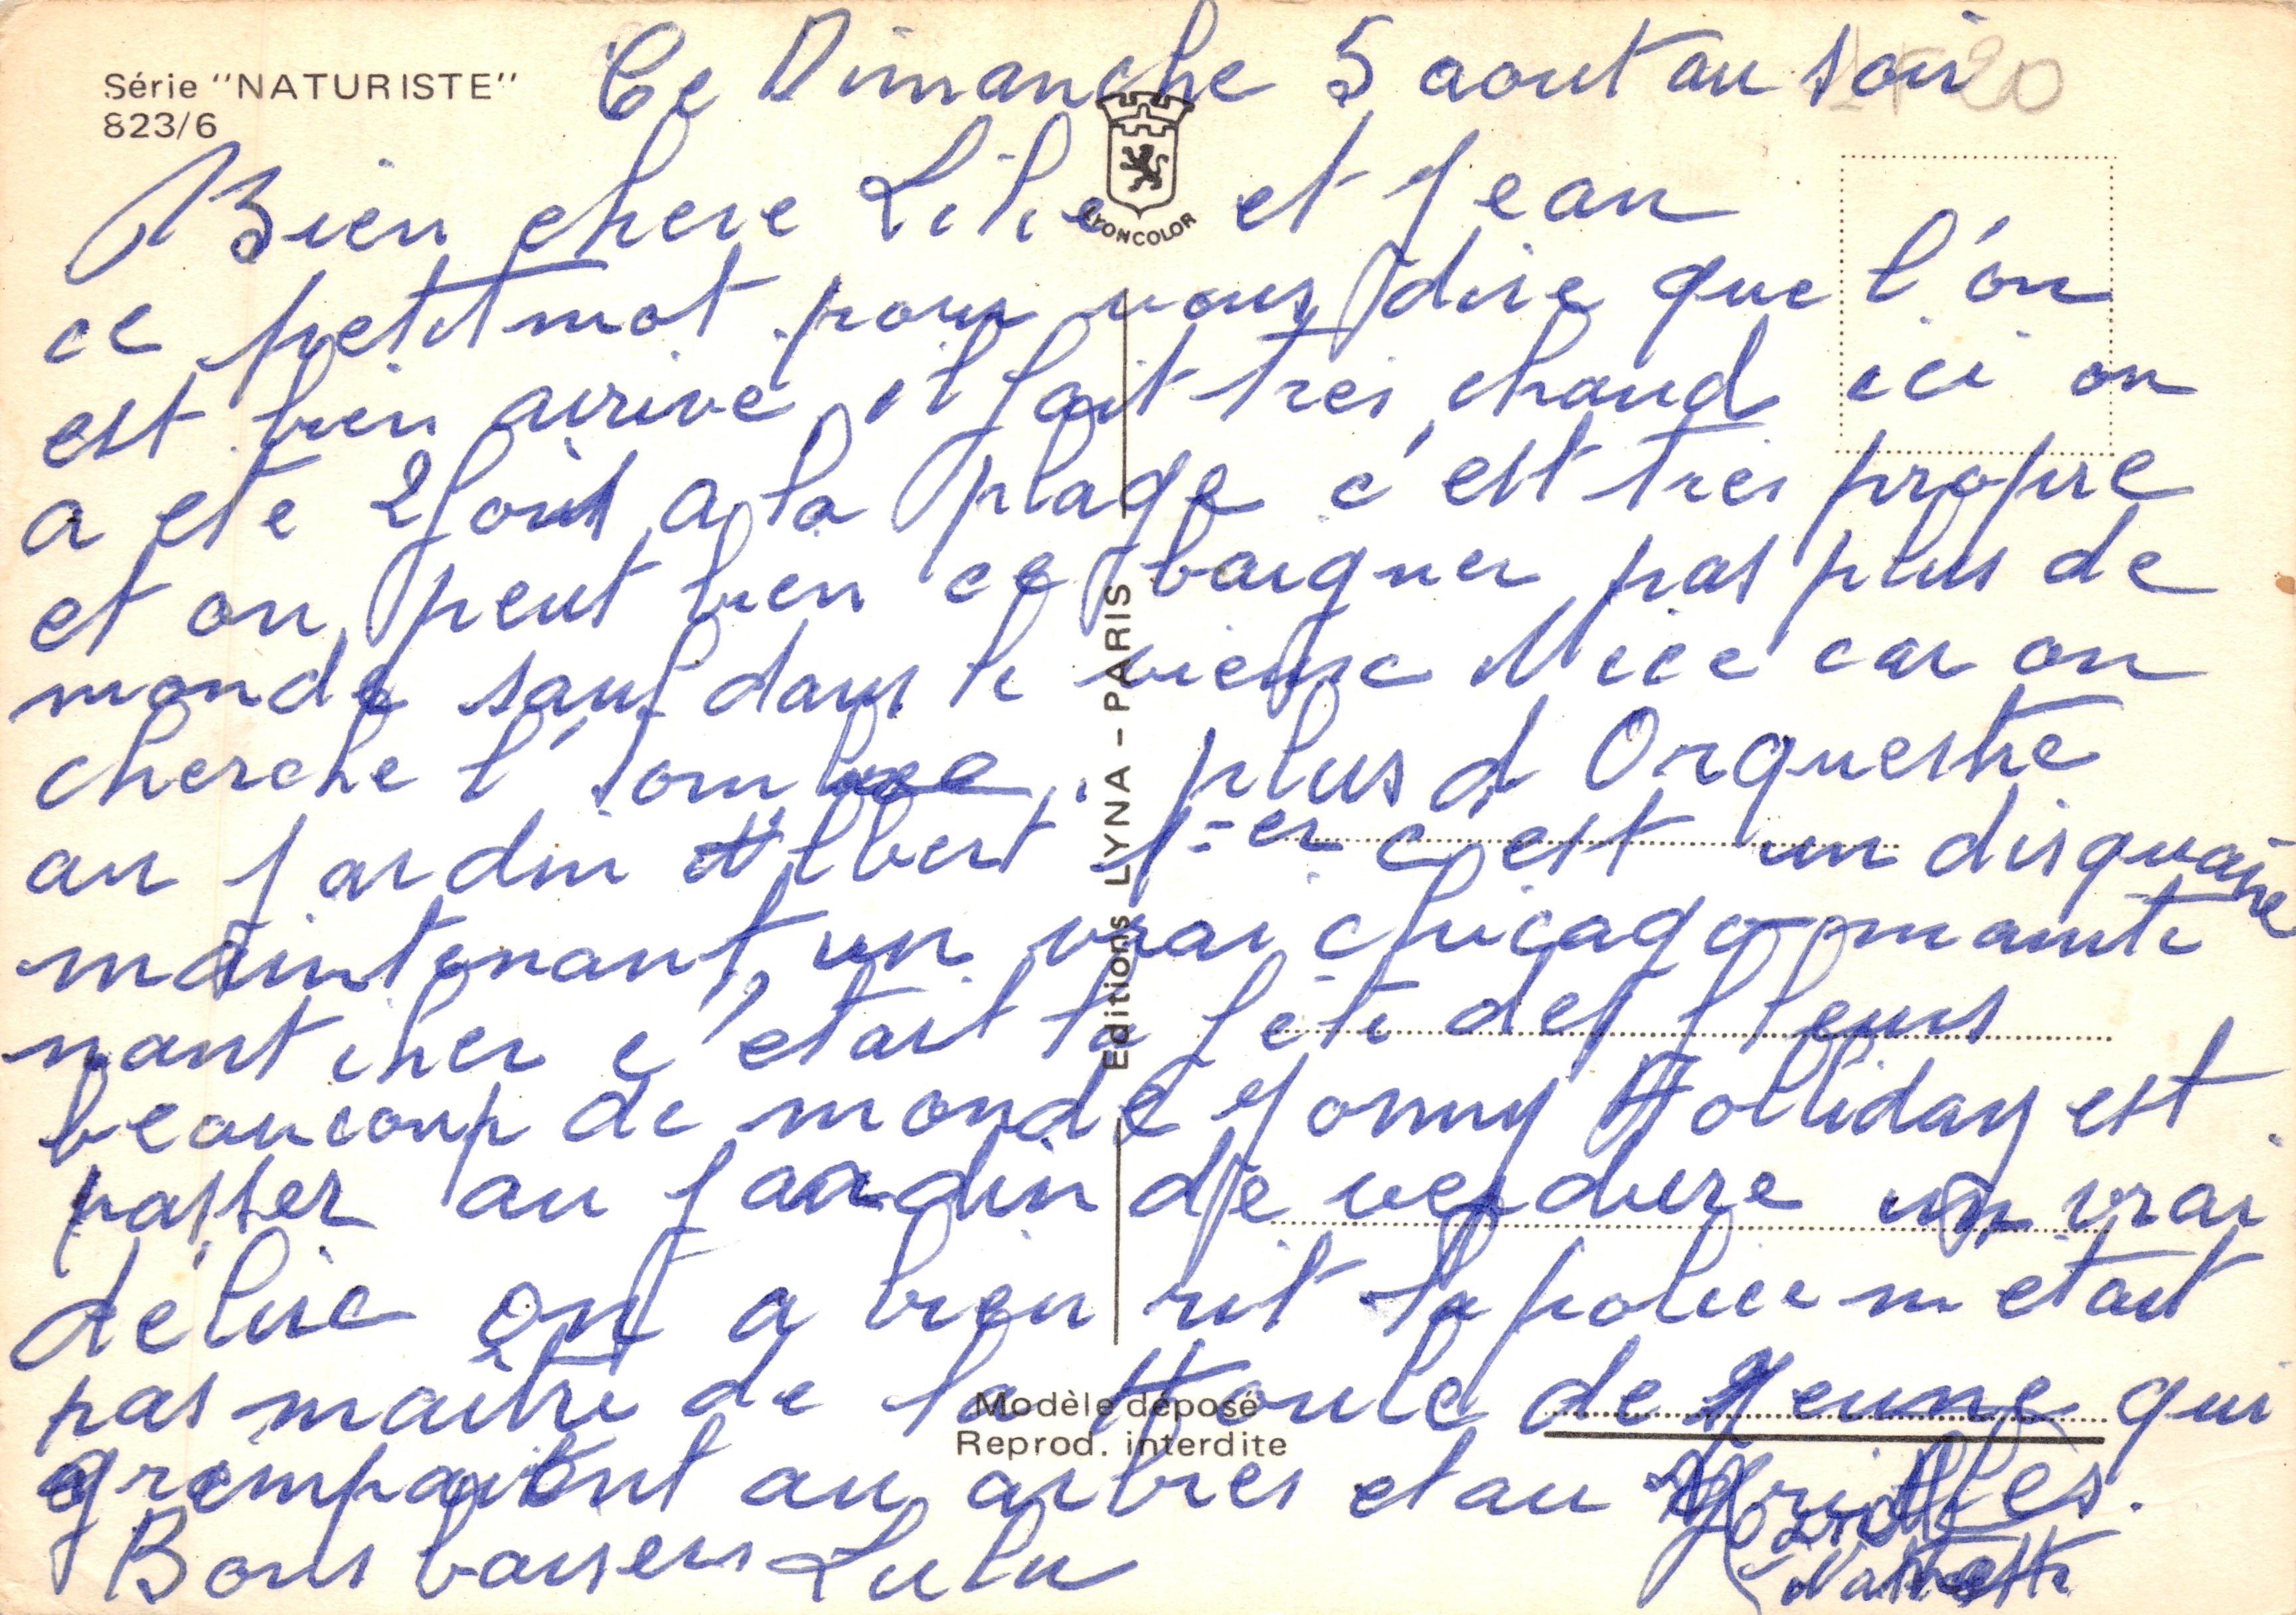 Série "NATURISTE"
823/6
Ce Dimanche 5 aout au soir
Bien chere Lilie et Jean
LYONCOLOR
ce petit mot pour vous dire que l'on
est bien arrivé, il fait tres chaud ici on
a ete 2 fois a la plage c'est tres propre
et on peut bien ce baigner pas plus de
monde sauf dans le vieux Nice car on
cherche l'ombre, plus d Orquestre
au jardin Albert 1er c'est un disquaire
maintenant, un vrai chicago mainte
nant, hier c'etait la fête des fleurs
beaucoup de monde Jonny Holliday est
passer au jardin de verdure un vrai
délire on a bien rit la police n etait
pas maitre de la foule de jeune qui
grimpaient au arbres et au grilles.
Bons baisers Lulu
Editions LYNA - PARIS
Modèle déposé
Reprod. interdite